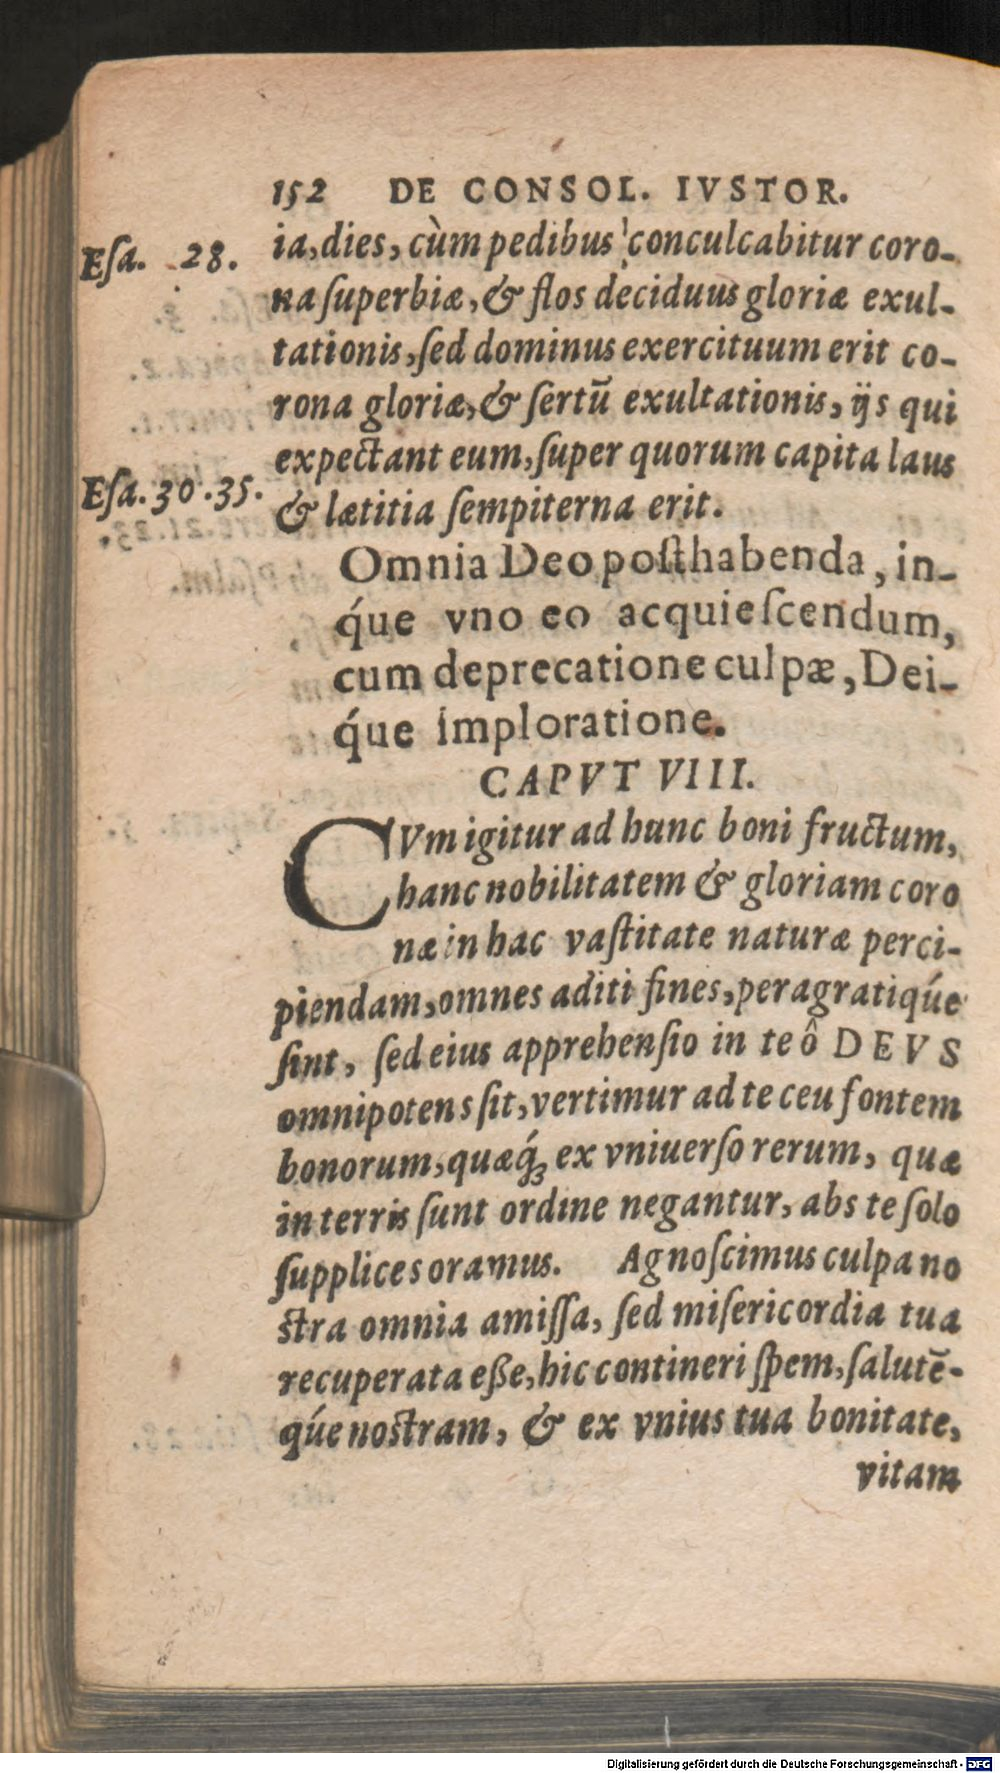 152 DE CONSOL. IVSTOR.
Eſa. 28.
ia, dies, cùm pedibus conculcabitur coro-
na ſuperbiæ, & flos deciduus gloriæ exul-
tationis, ſed dominus exercituum erit co-
rona gloriæ, & ſertū exultationis, ijs qui
expectant eum, ſuper quorum capita laus
Eſa. 30. 35.
& lætitia ſempiterna erit.
Omnia Deo poſthabenda, in-
q́ue vno eo acquieſcendum,
cum deprecatione culpæ, Dei-
q́ue imploratione.
CAPVT VIII.
CVm igitur ad hunc boni fructum,
hanc nobilitatem & gloriam coro
næ in hac vaſtitate naturæ perci-
piendam, omnes aditi fines, peragratiq́ue
ſint, ſed eius apprehenſio in te ô DEVS
omnipotens ſit, vertimur ad te ceu fontem
bonorum, quæq́; ex vniuerſo rerum, quæ
in terris ſunt ordine negantur, abs te ſolo
ſupplices oramus. Agnoſcimus culpa no
ſtra omnia amiſſa, ſed miſericordia tua
recuperata eße, hic contineri ſpem, ſalutē-
q́ue noſtram, & ex vnius tua bonitate,
vitam
Digitalisierung gefördert durch die Deutsche Forschungsgemeinschaft - DFG